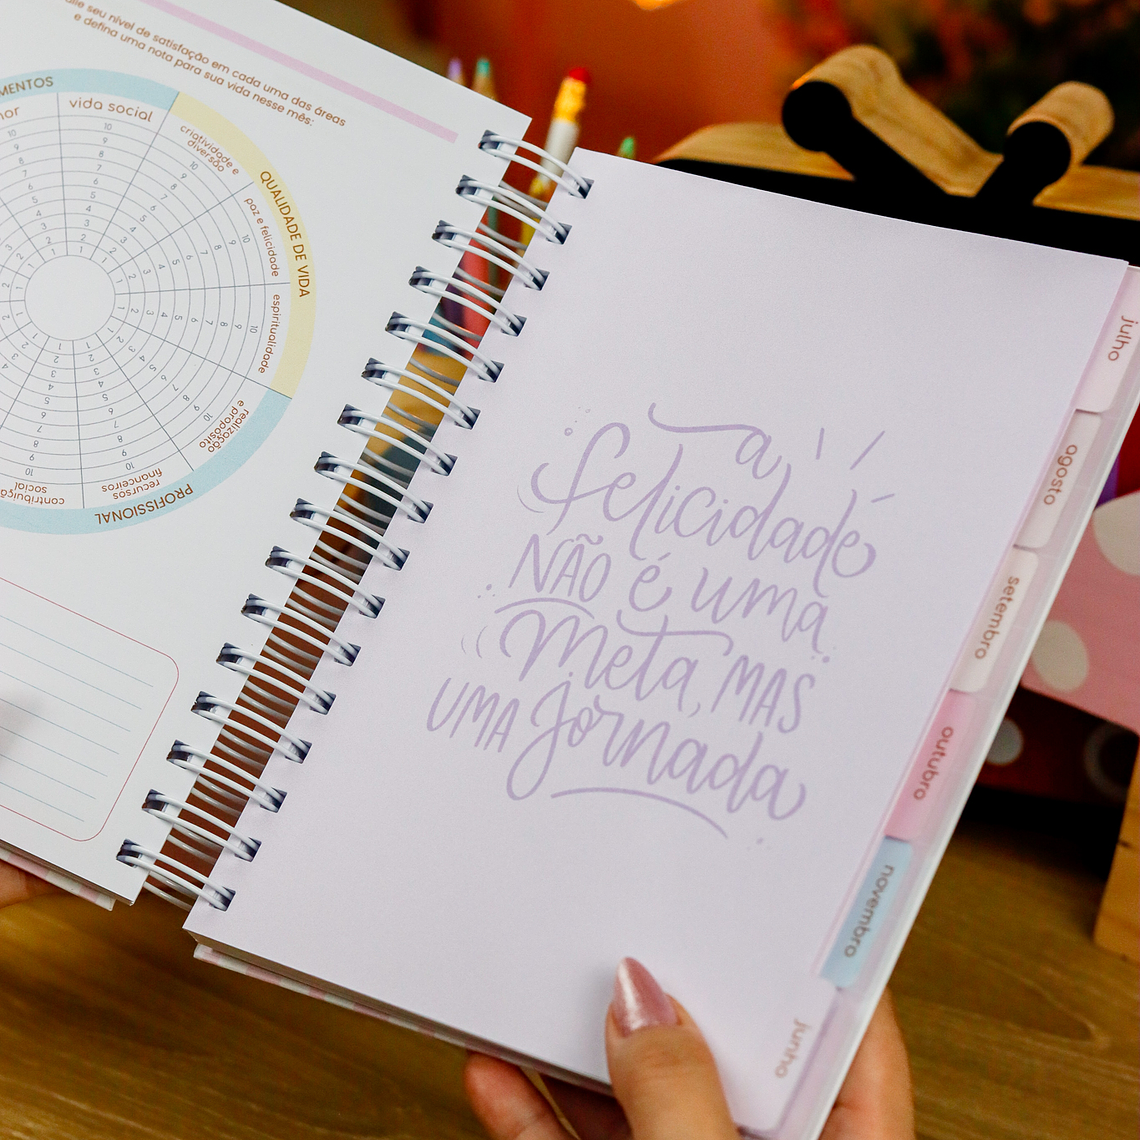 seu nível de satisfação em cada uma das áreas
e defina uma nota para sua vida nesse mês:
vida social
criatividade e
diversão
QUALIDADE DE VIDA
paz e felicidade
espiritualidade
realização
e propósito
recursos
financeiros
social
PROFISSIONAL
10
9
8
7
6
5
4
3
2
1
a
felicidade
NÃO é uma
Meta, MAS
UMA Jornada
julho
agosto
setembro
outubro
novembro
junho